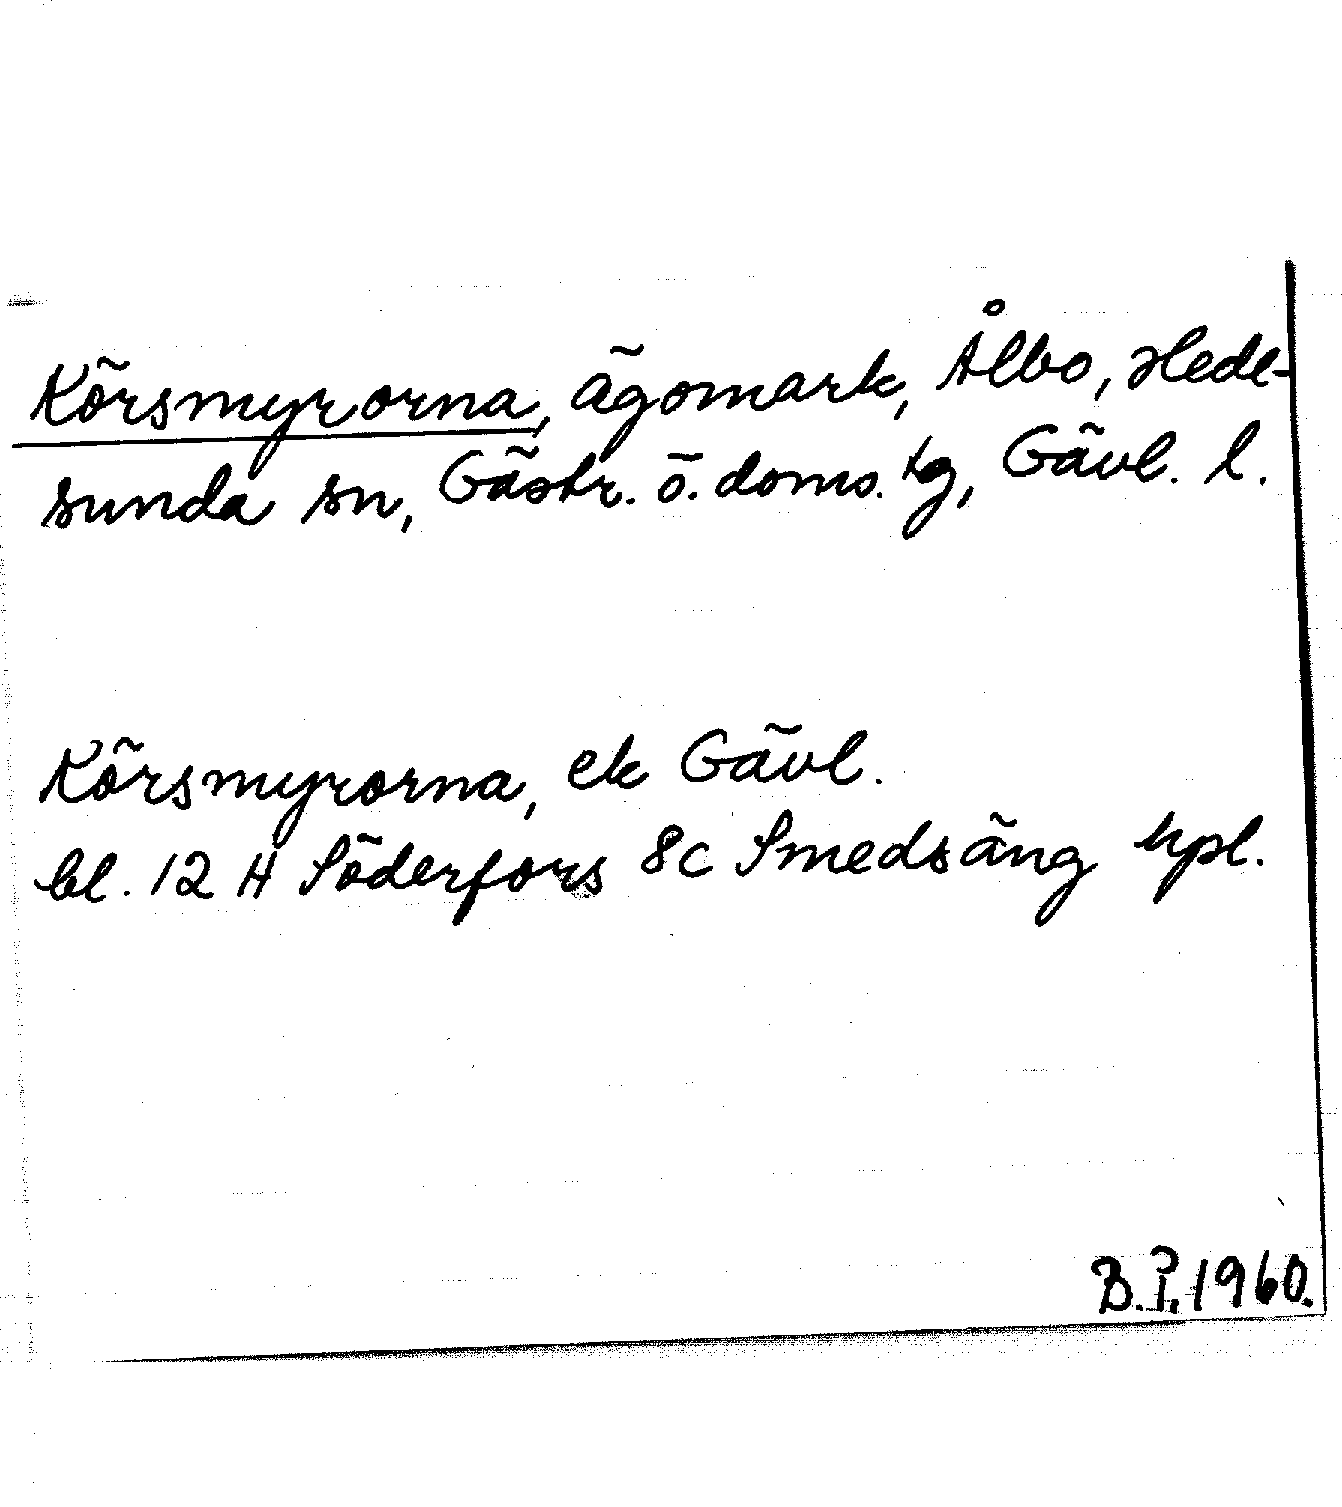 Körsmyrorna, ägomark, Ålbo, Hede-
sunda sn, Gästr. ö. doms. tg, Gävl. l.
Körsmyrorna, ek Gävl.
bl. 12 H Söderfors 8c Smedsäng kpl.
B.P. 1960.